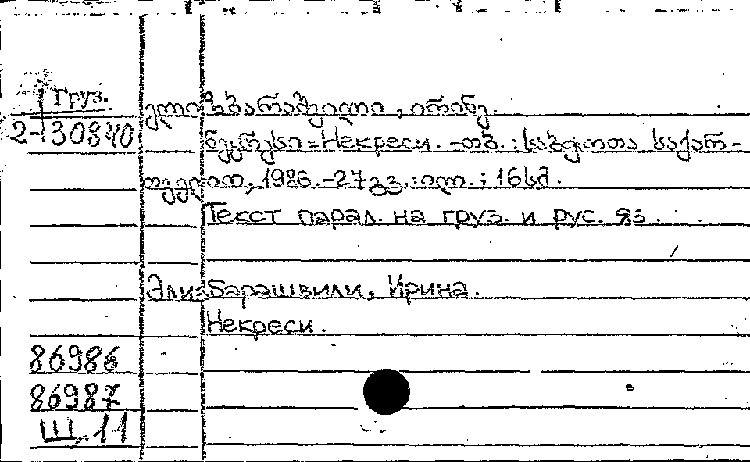 Груз.
2-130840
ელიზბარაშვილი, ირინე.
ნეკრესი = Некреси. -თბ. : საბჭოთა საქარ-
თველო, 1986. -27 გვ. : ილ. ; 16 სმ.
Текст парал. на груз. и рус. яз.
Элизбарашвили, Ирина.
Некреси.
86986
86987
Ш. 11